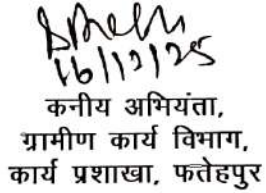 16/12/25
कनीय अभियंता,
ग्रामीण कार्य विभाग,
कार्य प्रशाखा, फतेहपुर